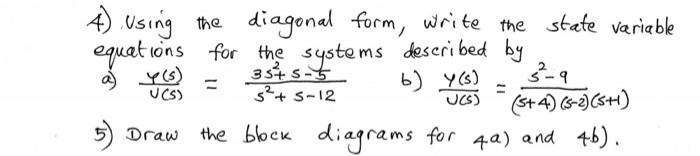 4) Using the diagonal form, write the state variable
equations for the systems described by
a) Y(s)/U(s) = 3s²+s-5/s²+s-12 b) Y(s)/U(s) = s²-9/(s+4)(s-2)(s+1)
5) Draw the block diagrams for 4a) and 4b).